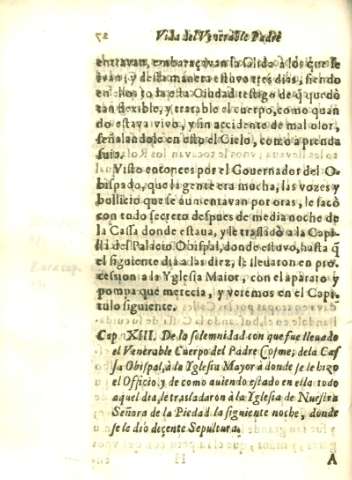 52 Vida del Venerable Padre
entravan, embaraçavan la salida à los que se
ivan; y desta manera estuvo tres dias, siendo
en ellos toda esta Ciudad testigo de q̃ quedò
tan flexible, y tratable el cuerpo, como quan
do estava vivo, y sin accidente de mal olor,
señalandolo en esto el Cielo, como a prenda
suia.
Visto entonces por el Governador del O-
bispado, que la gente era mucha, las vozes y
bullicio que se aumentavan por oras, le sacò
con todo secreto despues de media noche de
la Cassa donde estaua, y le trasladò a la Capi-
lla del Palacio Obispal, donde estuvo, hasta q̃
el siguiente dia a las diez, le llevaron en pro-
cession a la Yglesia Maior, con el aparato y
pompa que merecia, y veremos en el Capi-
tulo siguiente.
Cap. XIII. De la solemnidad con que fue lleuado
el Venerable Cuerpo del Padre Cosme, de la Cas
sa Obispal, à la Yglesia Mayor a donde se le hizo
el Officio, y de como auiendo estado en ella todo
aquel dia, le trasladaron à la Iglesia de Nuestra
Señora de la Piedad la siguiente noche, donde
se le diò decente Sepultura.
A